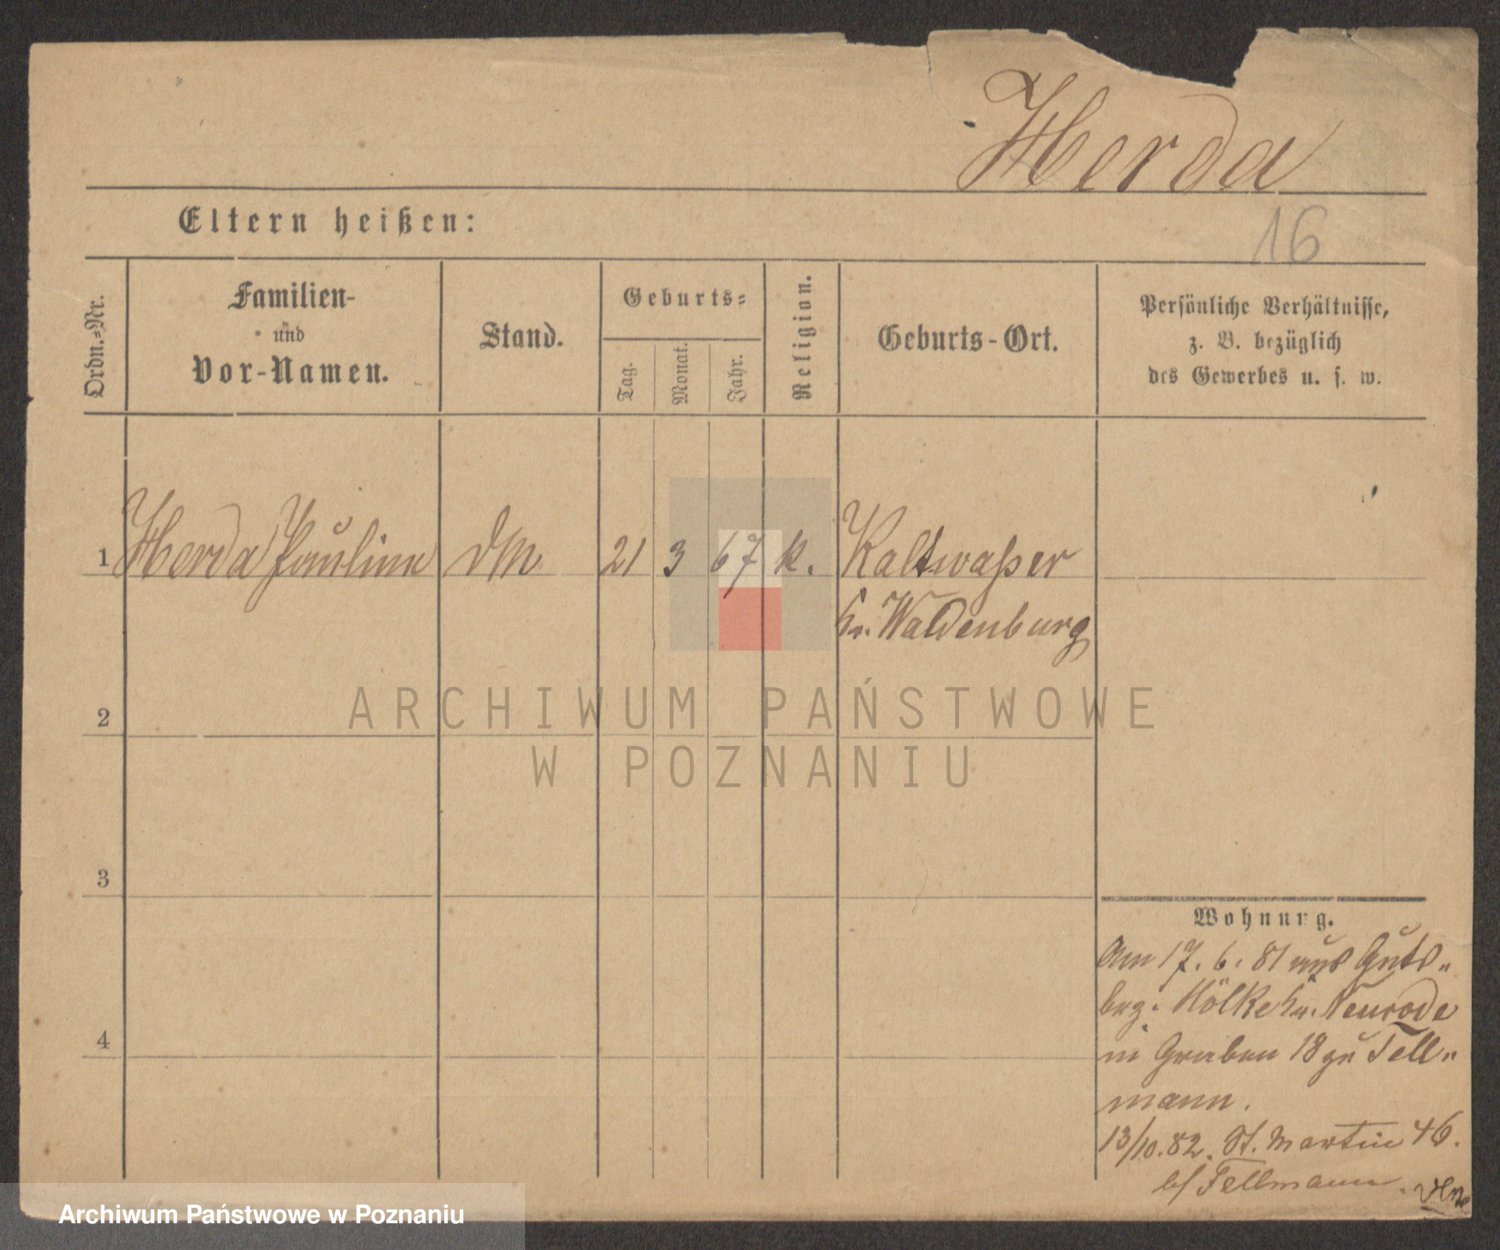 Herda
16
Eltern heißen:
Ordn.-Nr.
Familien-
und
Vor-Namen.
Stand.
Geburts-
Tag.
Monat.
Jahr.
Religion.
Geburts-Ort.
Persönliche Verhältnisse,
z. B. bezüglich
des Gewerbes u. s. w.
1 Herda Pauline DM. 21 3 67 k. Kaltwaßer
Kr. Waldenburg
2
3
4
Wohnung.
Am 17. 6. 81 aus Guts-
bez. Kölke Kr. Neurode
in Graben 18 zu Tell-
mann.
13/10. 82. St. Martin 46.
b/ Tellmann.
ARCHIWUM PAŃSTWOWE
W POZNANIU
Archiwum Państwowe w Poznaniu